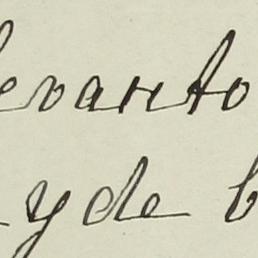 levanto
y de b